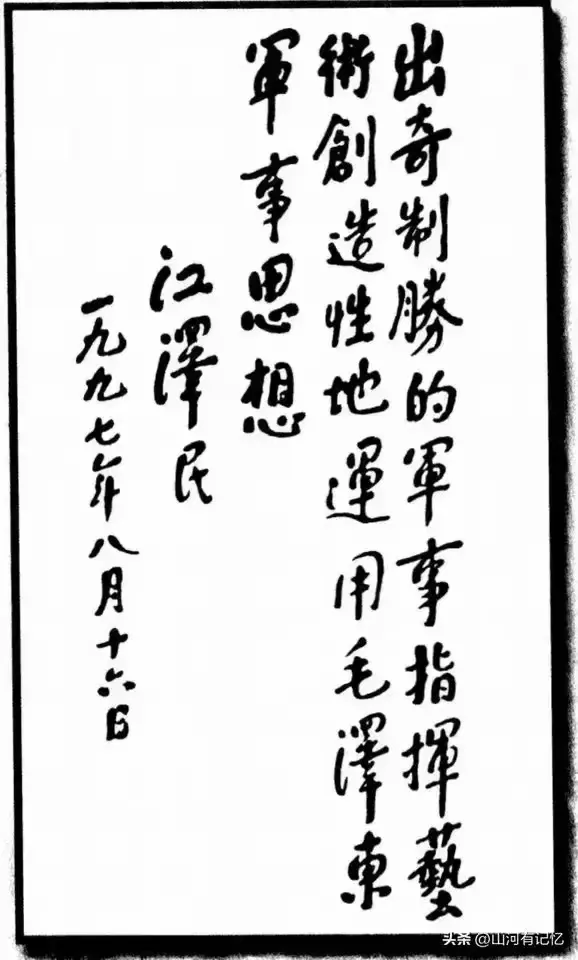 出奇制勝的軍事指揮藝
術創造性地運用毛澤東
軍事思想
江澤民
一九九七年八月十六日
头条@山河有记忆